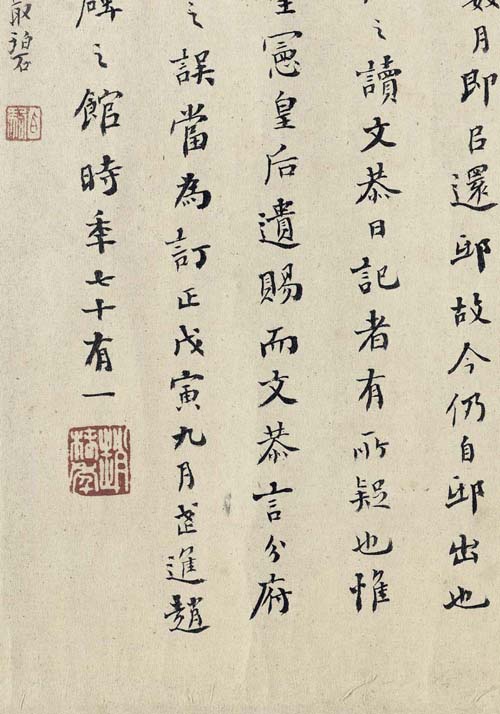 月即召還邸故今仍自邸出也
之讀文恭日記者有所疑也惟
聖憲皇后遺賜而文恭言分府
之誤當為訂正戊寅九月武進趙
碑之館時秊七十有一
趙椿年